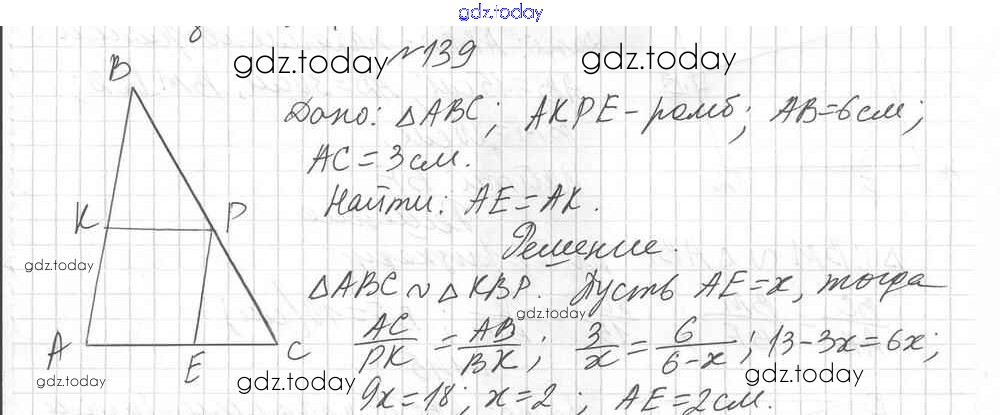 gdz.today
№139
gdz.today gdz.today
B
Дано: △ABC; AKPE - ромб; AB = 6 см;
AC = 3 см.
Найти: AE = AK.
K P
Решение.
gdz.today
△ABC ~ △KBP. Пусть AE = x, тогда
gdz.today
AC/PK = AB/BK; 3/x = 6/(6-x); 13-3x = 6x;
A E C
gdz.today gdz.today gdz.today
9x = 18; x = 2; AE = 2 см.